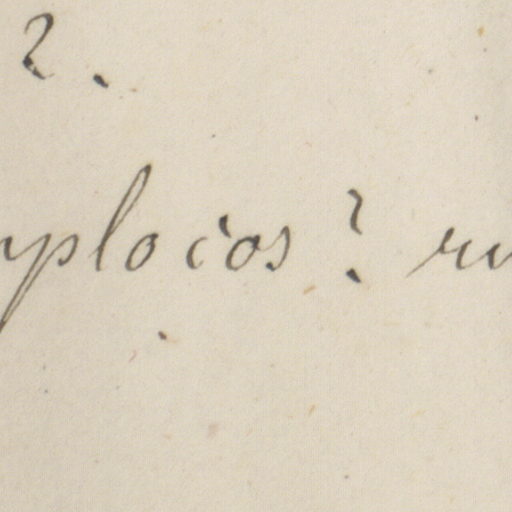 2.
yplocos? ru